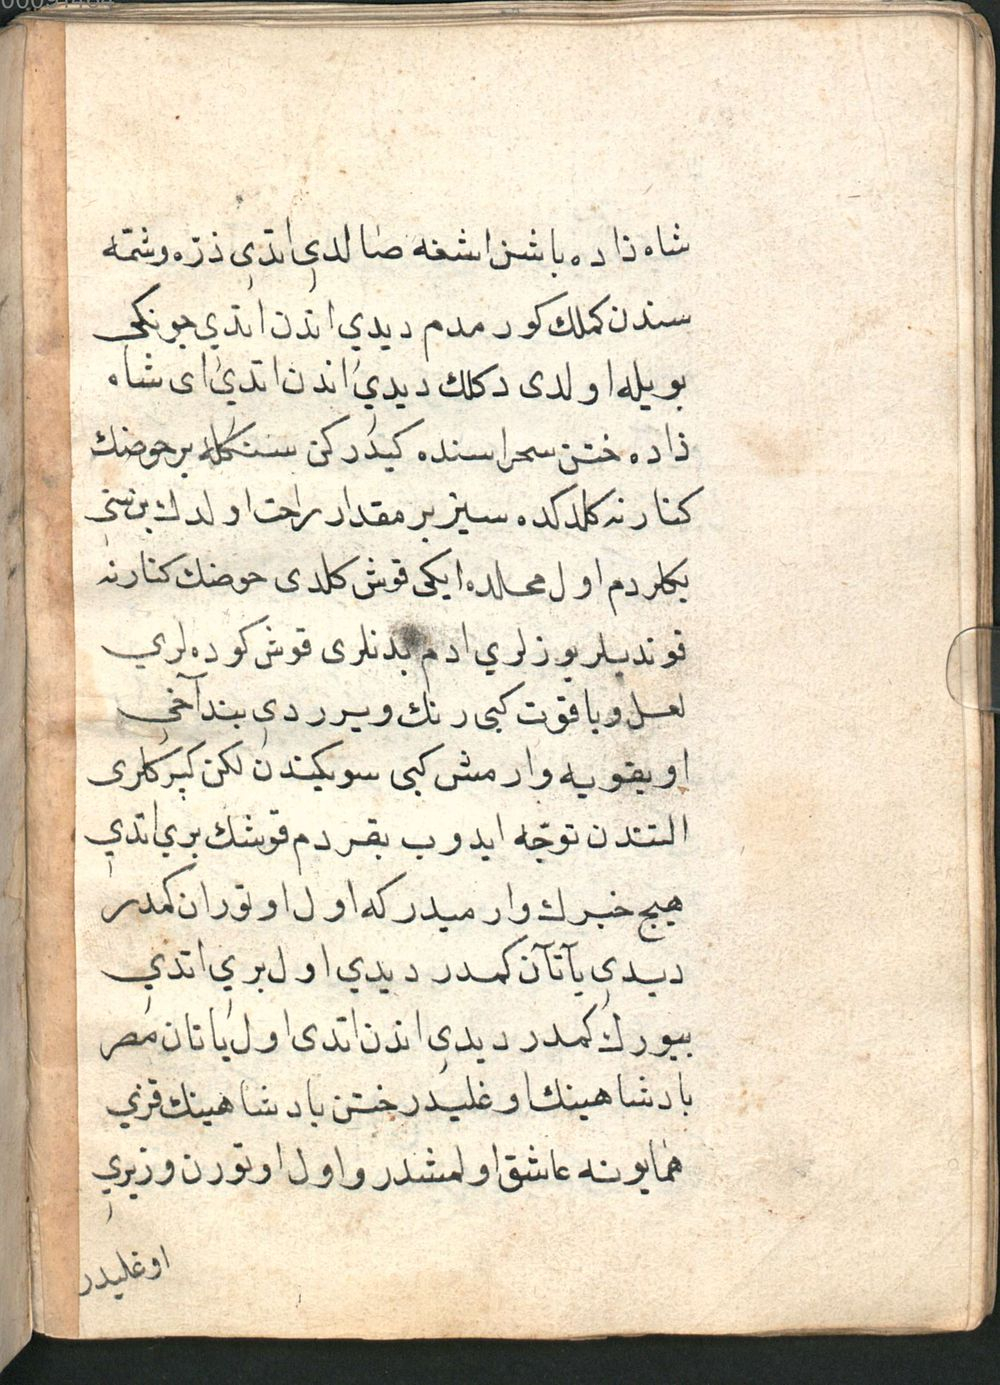 شاه زاده باشن اشغه صالدي اتدي ذرّه وشمّه
سندن كملك كورمدم ديدي اندن اتدي چونكى
بويله اولدى دكلك ديدي اندن اتدي اى شاه
زاده ختن سحراسنده كيدركن سنكله بر حوضك
كنارنه كلدكده سيز بر مقدار راحت اولدك بن سنى
بكلردم اول محلده ايكى قوش كلدى حوضك كنارنه
قونديلر يوزلري ادم بدنلرى قوش كوده لري
لعل وياقوت كبى رنك ويرردي بند آخى
اويقويه وارمش كبى سويكندن لكن كيركلرى
التندن توجّه ايدوب بقردم قوشك بري اتدي
هيچ خبرك وارميدركه اول اوتوران كمدر
ديدي يآتآن كمدر ديدي اول بري اتدي
بيورك كمدر ديدي اندن اتدى اول ياتان مصر
پادشاهينك اوغليدر ختن پادشاهينك قزني
همايونه عاشق اولمشدر واول اوتورن وزيري
اوغليدر